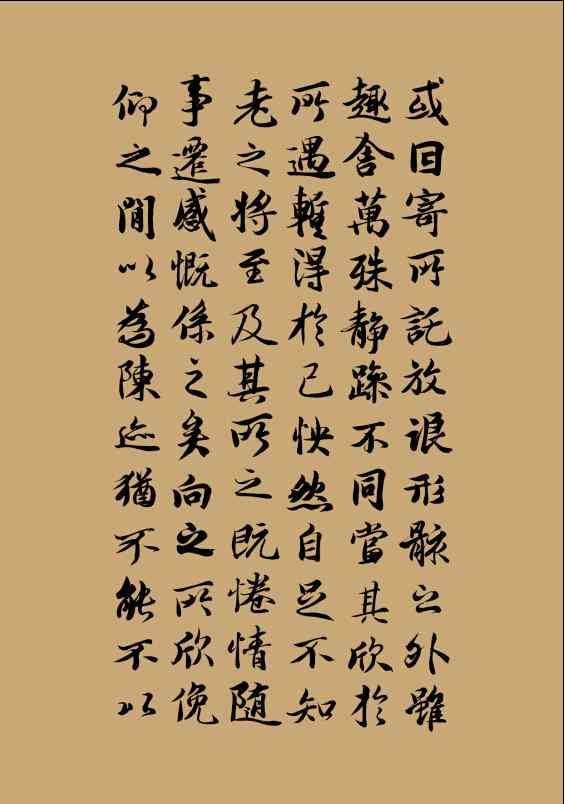 或因寄所託放浪形骸之外雖
趣舍萬殊靜躁不同當其欣於
所遇暫得於己怏然自足不知
老之將至及其所之既惓情隨
事遷感慨係之矣向之所欣俛
仰之間以為陳迹猶不能不以